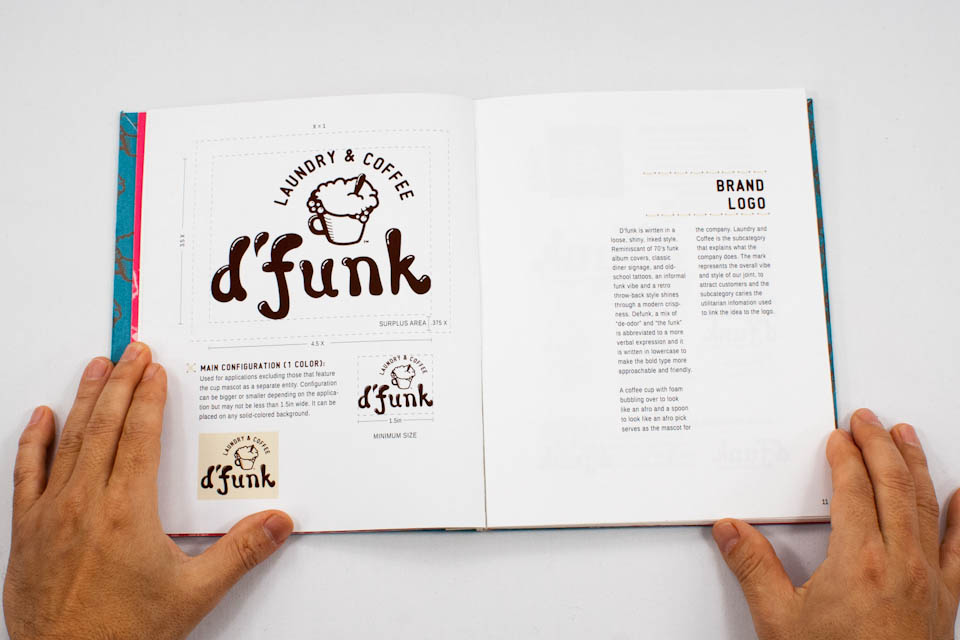 X = 1
LAUNDRY & COFFEE
d'funk
TM
3.5 X
SURPLUS AREA
.375 X
4.5 X
MAIN CONFIGURATION (1 COLOR):
Used for applications excluding those that feature
the cup mascot as a separate entity. Configuration
can be bigger or smaller depending on the applica-
tion but may not be less than 1.5in wide. It can be
placed on any solid-colored background.
LAUNDRY & COFFEE
d'funk
LAUNDRY & COFFEE
d'funk
1.5in
MINIMUM SIZE
BRAND
LOGO
D'funk is written in a
loose, shiny, Inked style.
Reminiscant of 70's funk
album covers, classic
diner signage, and old-
school tattoos, an informal
funk vibe and a retro
throw-back style shines
through a modern crisp-
ness. Defunk, a mix of
"de-odor" and "the funk"
is abbreviated to a more
verbal expression and it
is written in lowercase to
make the bold type more
approachable and friendly.
A coffee cup with foam
bubbling over to look
like an afro and a spoon
to look like an afro pick
serves as the mascot for
the company. Laundry and
Coffee is the subcategory
that explains what the
company does. The mark
represents the overall vibe
and style of our joint, to
attract customers and the
subcategory caries the
utilitarian infomation used
to link the idea to the logo.
11